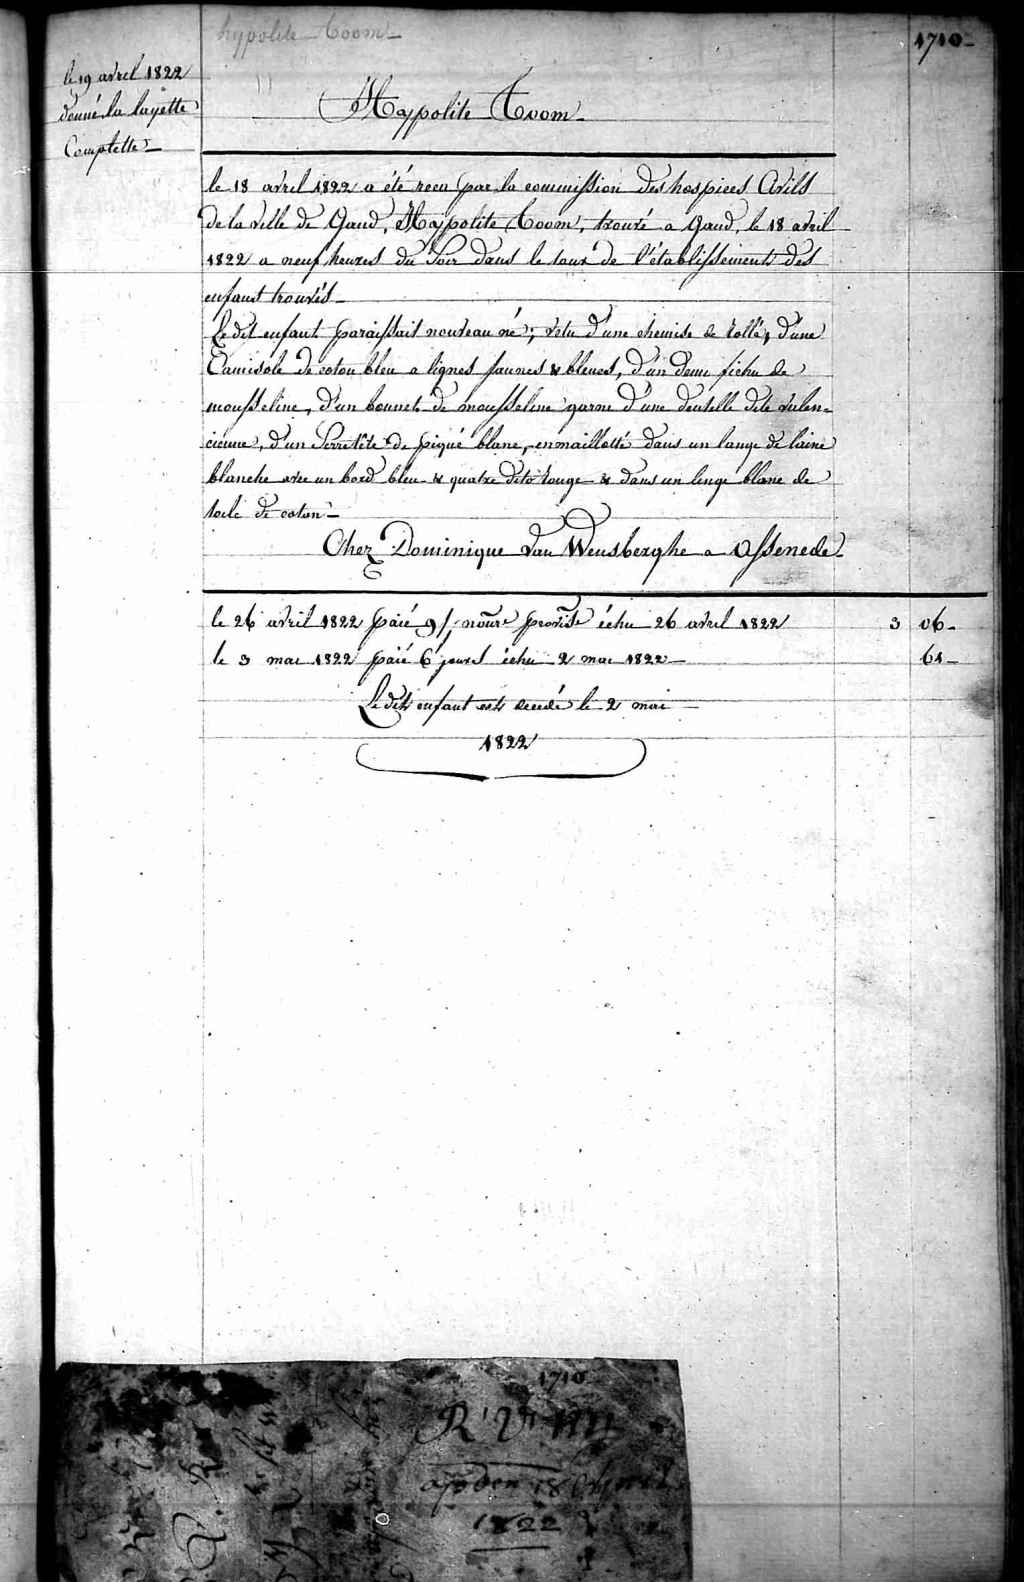 hypolite Toom
1710
le 19 avril 1822
donné la layette
Complette
Hÿppolite Toom
le 18 avril 1822 a été recu par la commission des hospices Civils
de la ville de Gand, Hÿppolite Toom, trouvé a Gand, le 18 avril
1822 a neuf heures du Soir dans le tour de l'établissement des
enfant trouvés
Ledit enfant paraissait nouveau né; vetu d'une chemise de toile, d'une
Camisole de coton bleu a lignes jaunes & bleues, d'un demi fichu de
mousseline, d'un bonnet de mousseline garni d'une dentelle dite valen-
cienne, d'un Serretête de piqué blanc, emmaillotté dans un lange de laine
blanche avec un bord bleu & quatre dito rouge & dans un linge blanc de
toile de coton
Chez Dominique Van Wensberghe a Assenede
le 26 avril 1822 paié 9 j. nourre proviste échu 26 avril 1822 3 06
le 3 mai 1822 paié 6 jours échu 2 mai 1822 61
Ledit enfant est decedé le 2 mai
1822
1710
op den 18
1822